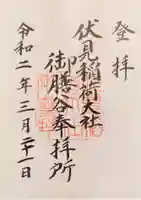 登拝
伏見稲荷大社
御膳谷奉拝所
令和二年三月二十一日